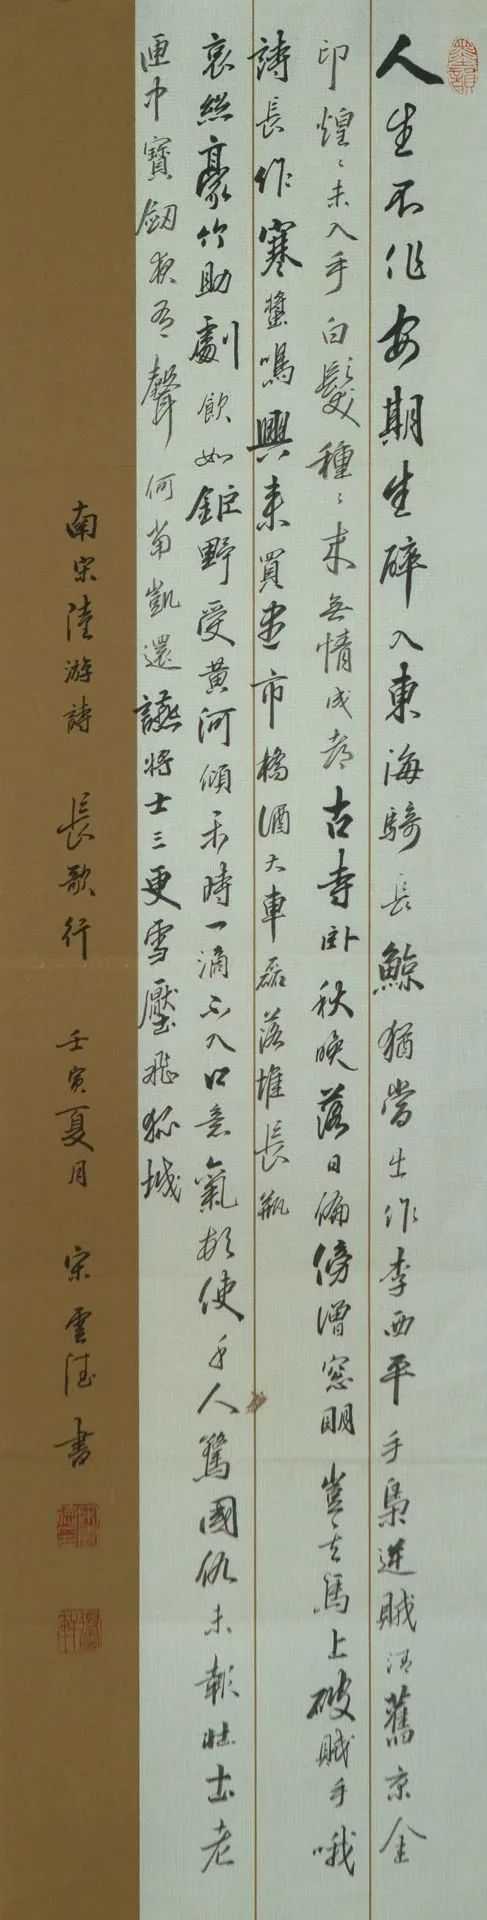 人生不作安期生醉入東海騎長鯨猶當出作李西平手梟逆賊清舊京金
印煌〻未入手白髮種〻來無情成都古寺臥秋晚落日偏傍僧窓明豈其馬上破賊手哦
詩長作寒螿鳴興來買盡市橋酒大車磊落堆長瓶
哀絲豪竹助劇飲如鉅野受黃河傾平時一滴不入口意氣頓使千人驚國仇未報壯士老
匣中寶劔夜有聲何當凱還讌將士三更雪壓飛狐城
南宋陸游詩 長歌行 壬寅夏月 宋雲德書